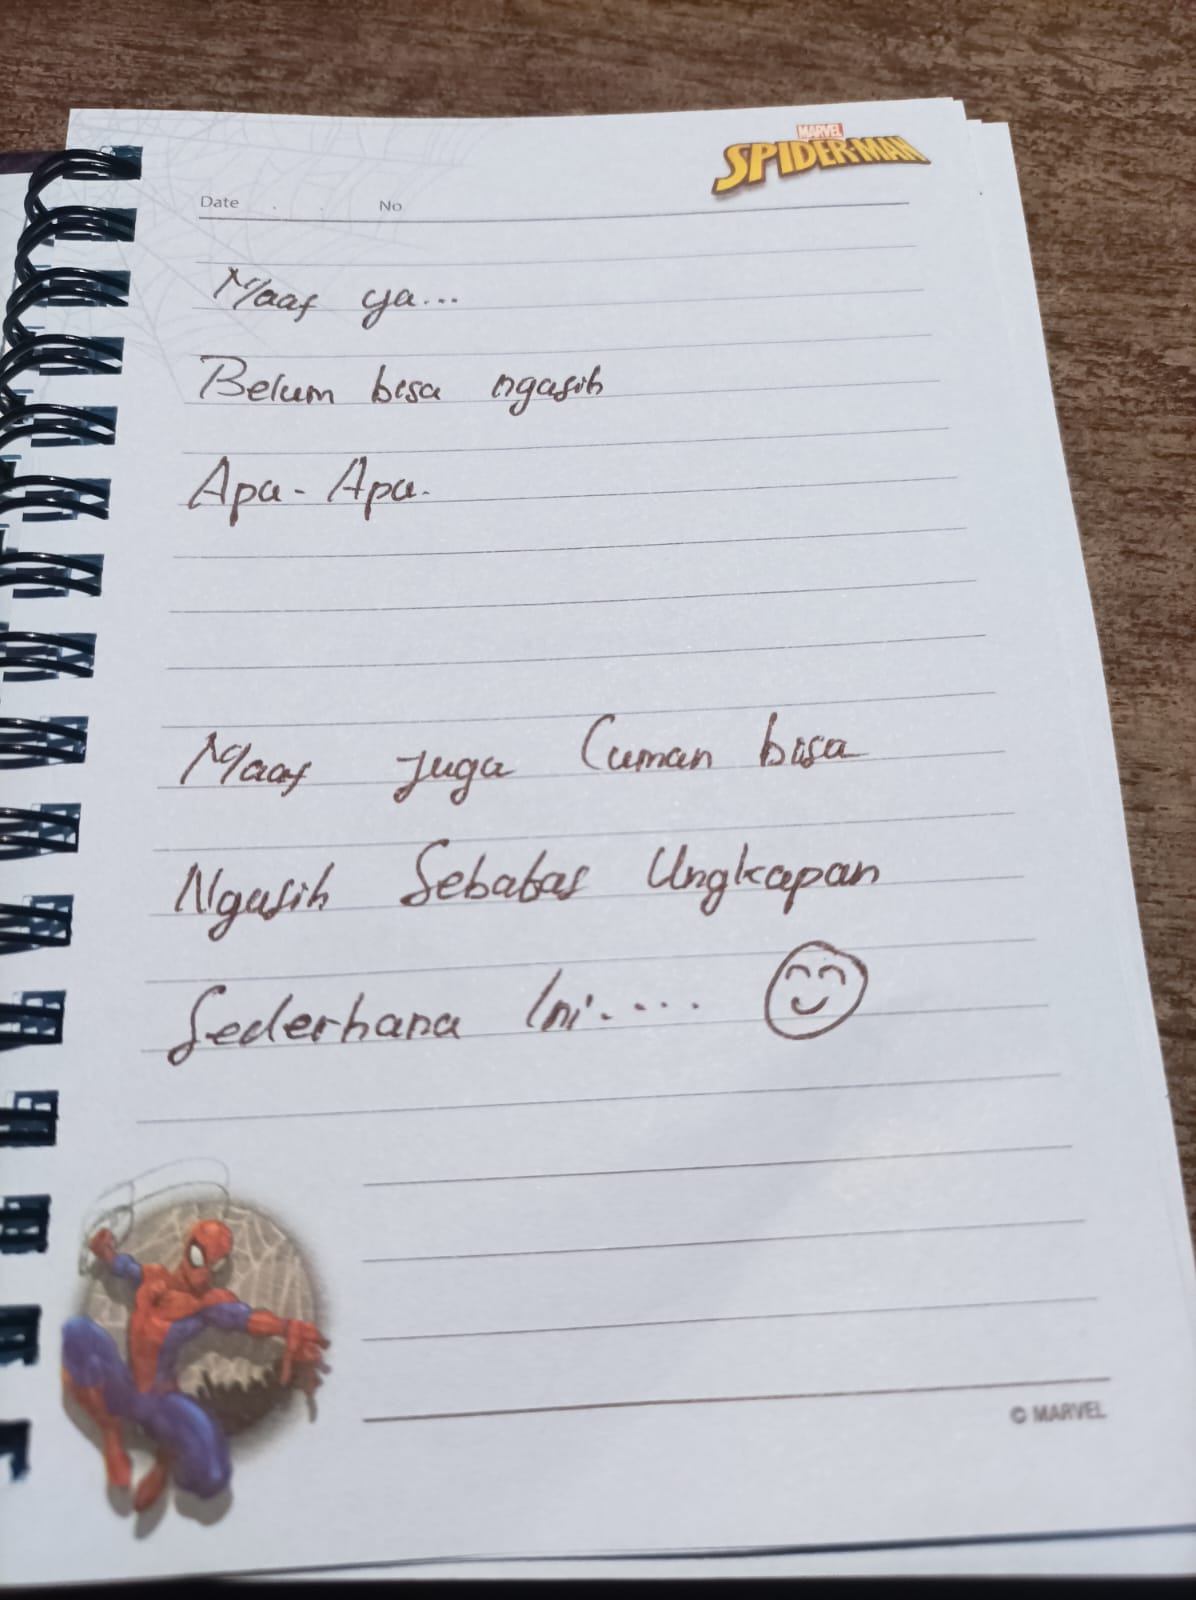 MARVEL
SPIDER-MAN
Date . . No.
Maaf ya...
Belum bisa ngasih
Apa-Apa.
Maaf juga Cuman bisa
Ngasih Sebatas Ungkapan
Sederhana Ini.....
© MARVEL